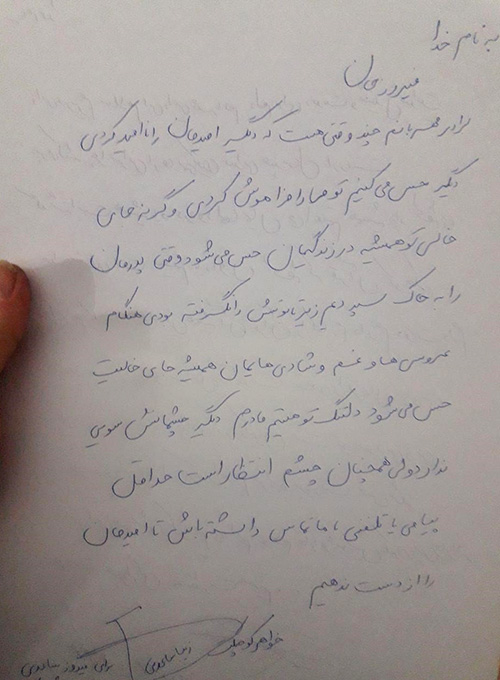 به نام خدا
فیروز جان
برادر مهربانم چند وقتی هست که دیگر امیدمان را ناامید کردی
دیگر حس می کنیم تو ما را فراموش کردی وگرنه جای
خالی تو همیشه در زندگیمان حس می شود وقتی پدرمان
را به خاک سپردیم زیر تابوتش را نگرفته بودی هنگام
عروسی ها و غم و شادی هایمان همیشه جای خالیت
حس می شود دلتنگ تو هستیم مادرم دیگر چشمانش سویی
ندارد ولی همچنان چشم انتظار است حداقل
پیامی یا تلفنی با ما تماس داشته باش تا امیدمان
را از دست ندهیم
خواهر کوچکت
برای فیروز